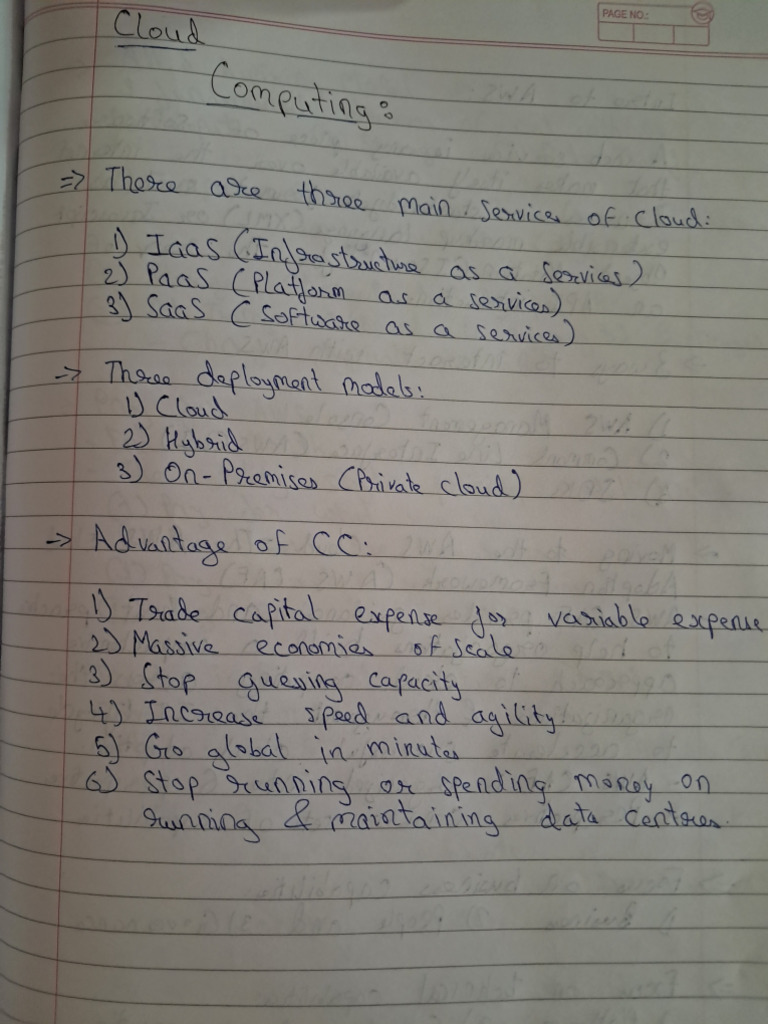 PAGE NO.:
Cloud
Computing:
=> There are three main services of cloud:
1) IaaS (Infrastructure as a services)
2) PaaS (Platform as a services)
3) SaaS (Software as a services)
-> Three deployment models:
1) Cloud
2) Hybrid
3) On-Premises (Private cloud)
-> Advantage of CC:
1) Trade capital expense for variable expense
2) Massive economies of scale
3) Stop guessing capacity
4) Increase speed and agility
5) Go global in minutes
6) Stop running or spending money on
running & maintaining data centres.